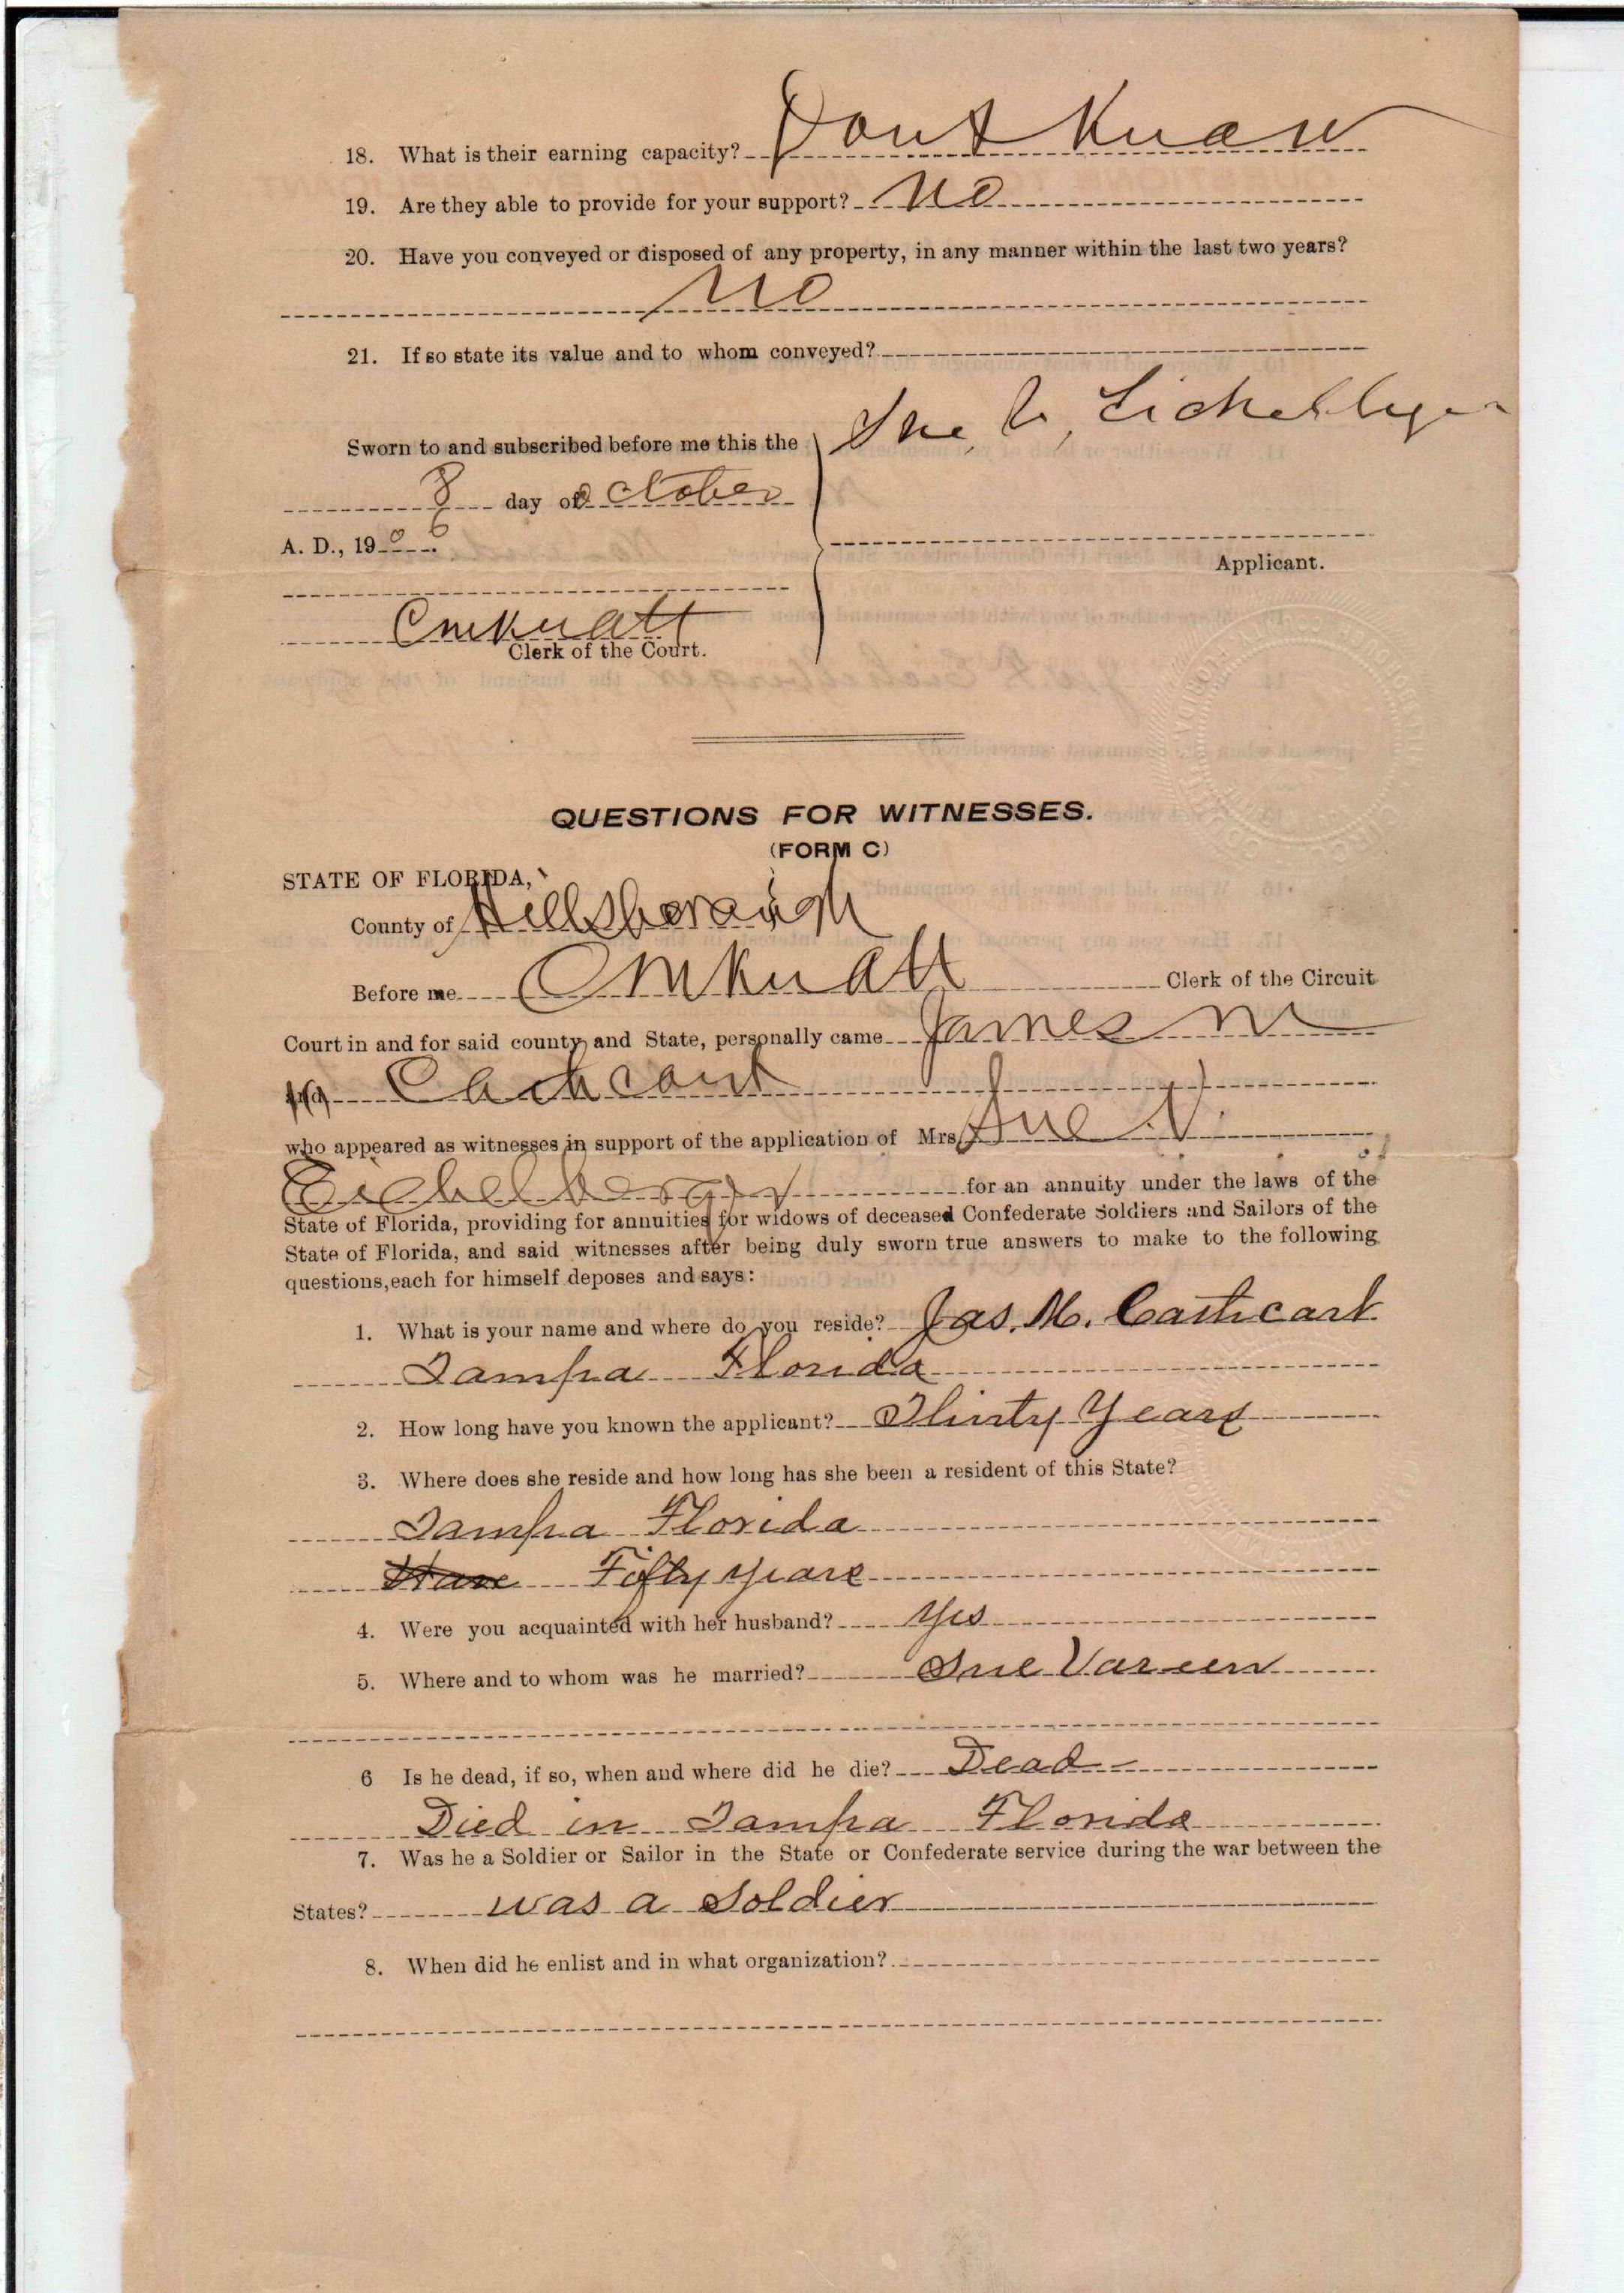 18. What is their earning capacity? Dont Know
19. Are they able to provide for your support? No
20. Have you conveyed or disposed of any property, in any manner within the last two years?
No
21. If so state its value and to whom conveyed?
Sue V, Eichelberger
Sworn to and subscribed before me this the
8 day of October
A. D., 1906
Applicant.
C M Knott
Clerk of the Court.
QUESTIONS FOR WITNESSES.
(FORM C)
STATE OF FLORIDA,
County of Hillsborough
Before me C M Knott Clerk of the Circuit
Court in and for said county and State, personally came James M
Cathcart
who appeared as witnesses in support of the application of Mrs Sue V.
Eichelberger for an annuity under the laws of the
State of Florida, providing for annuities for widows of deceased Confederate Soldiers and Sailors of the
State of Florida, and said witnesses after being duly sworn true answers to make to the following
questions, each for himself deposes and says:
1. What is your name and where do you reside? Jas. M. Cathcart
Tampa Florida
2. How long have you known the applicant? Thirty Years
3. Where does she reside and how long has she been a resident of this State?
Tampa Florida
Fifty years
4. Were you acquainted with her husband? Yes
5. Where and to whom was he married? Sue Vareen
6 Is he dead, if so, when and where did he die? Dead
Died in Tampa Florida
7. Was he a Soldier or Sailor in the State or Confederate service during the war between the
States? was a Soldier
8. When did he enlist and in what organization?